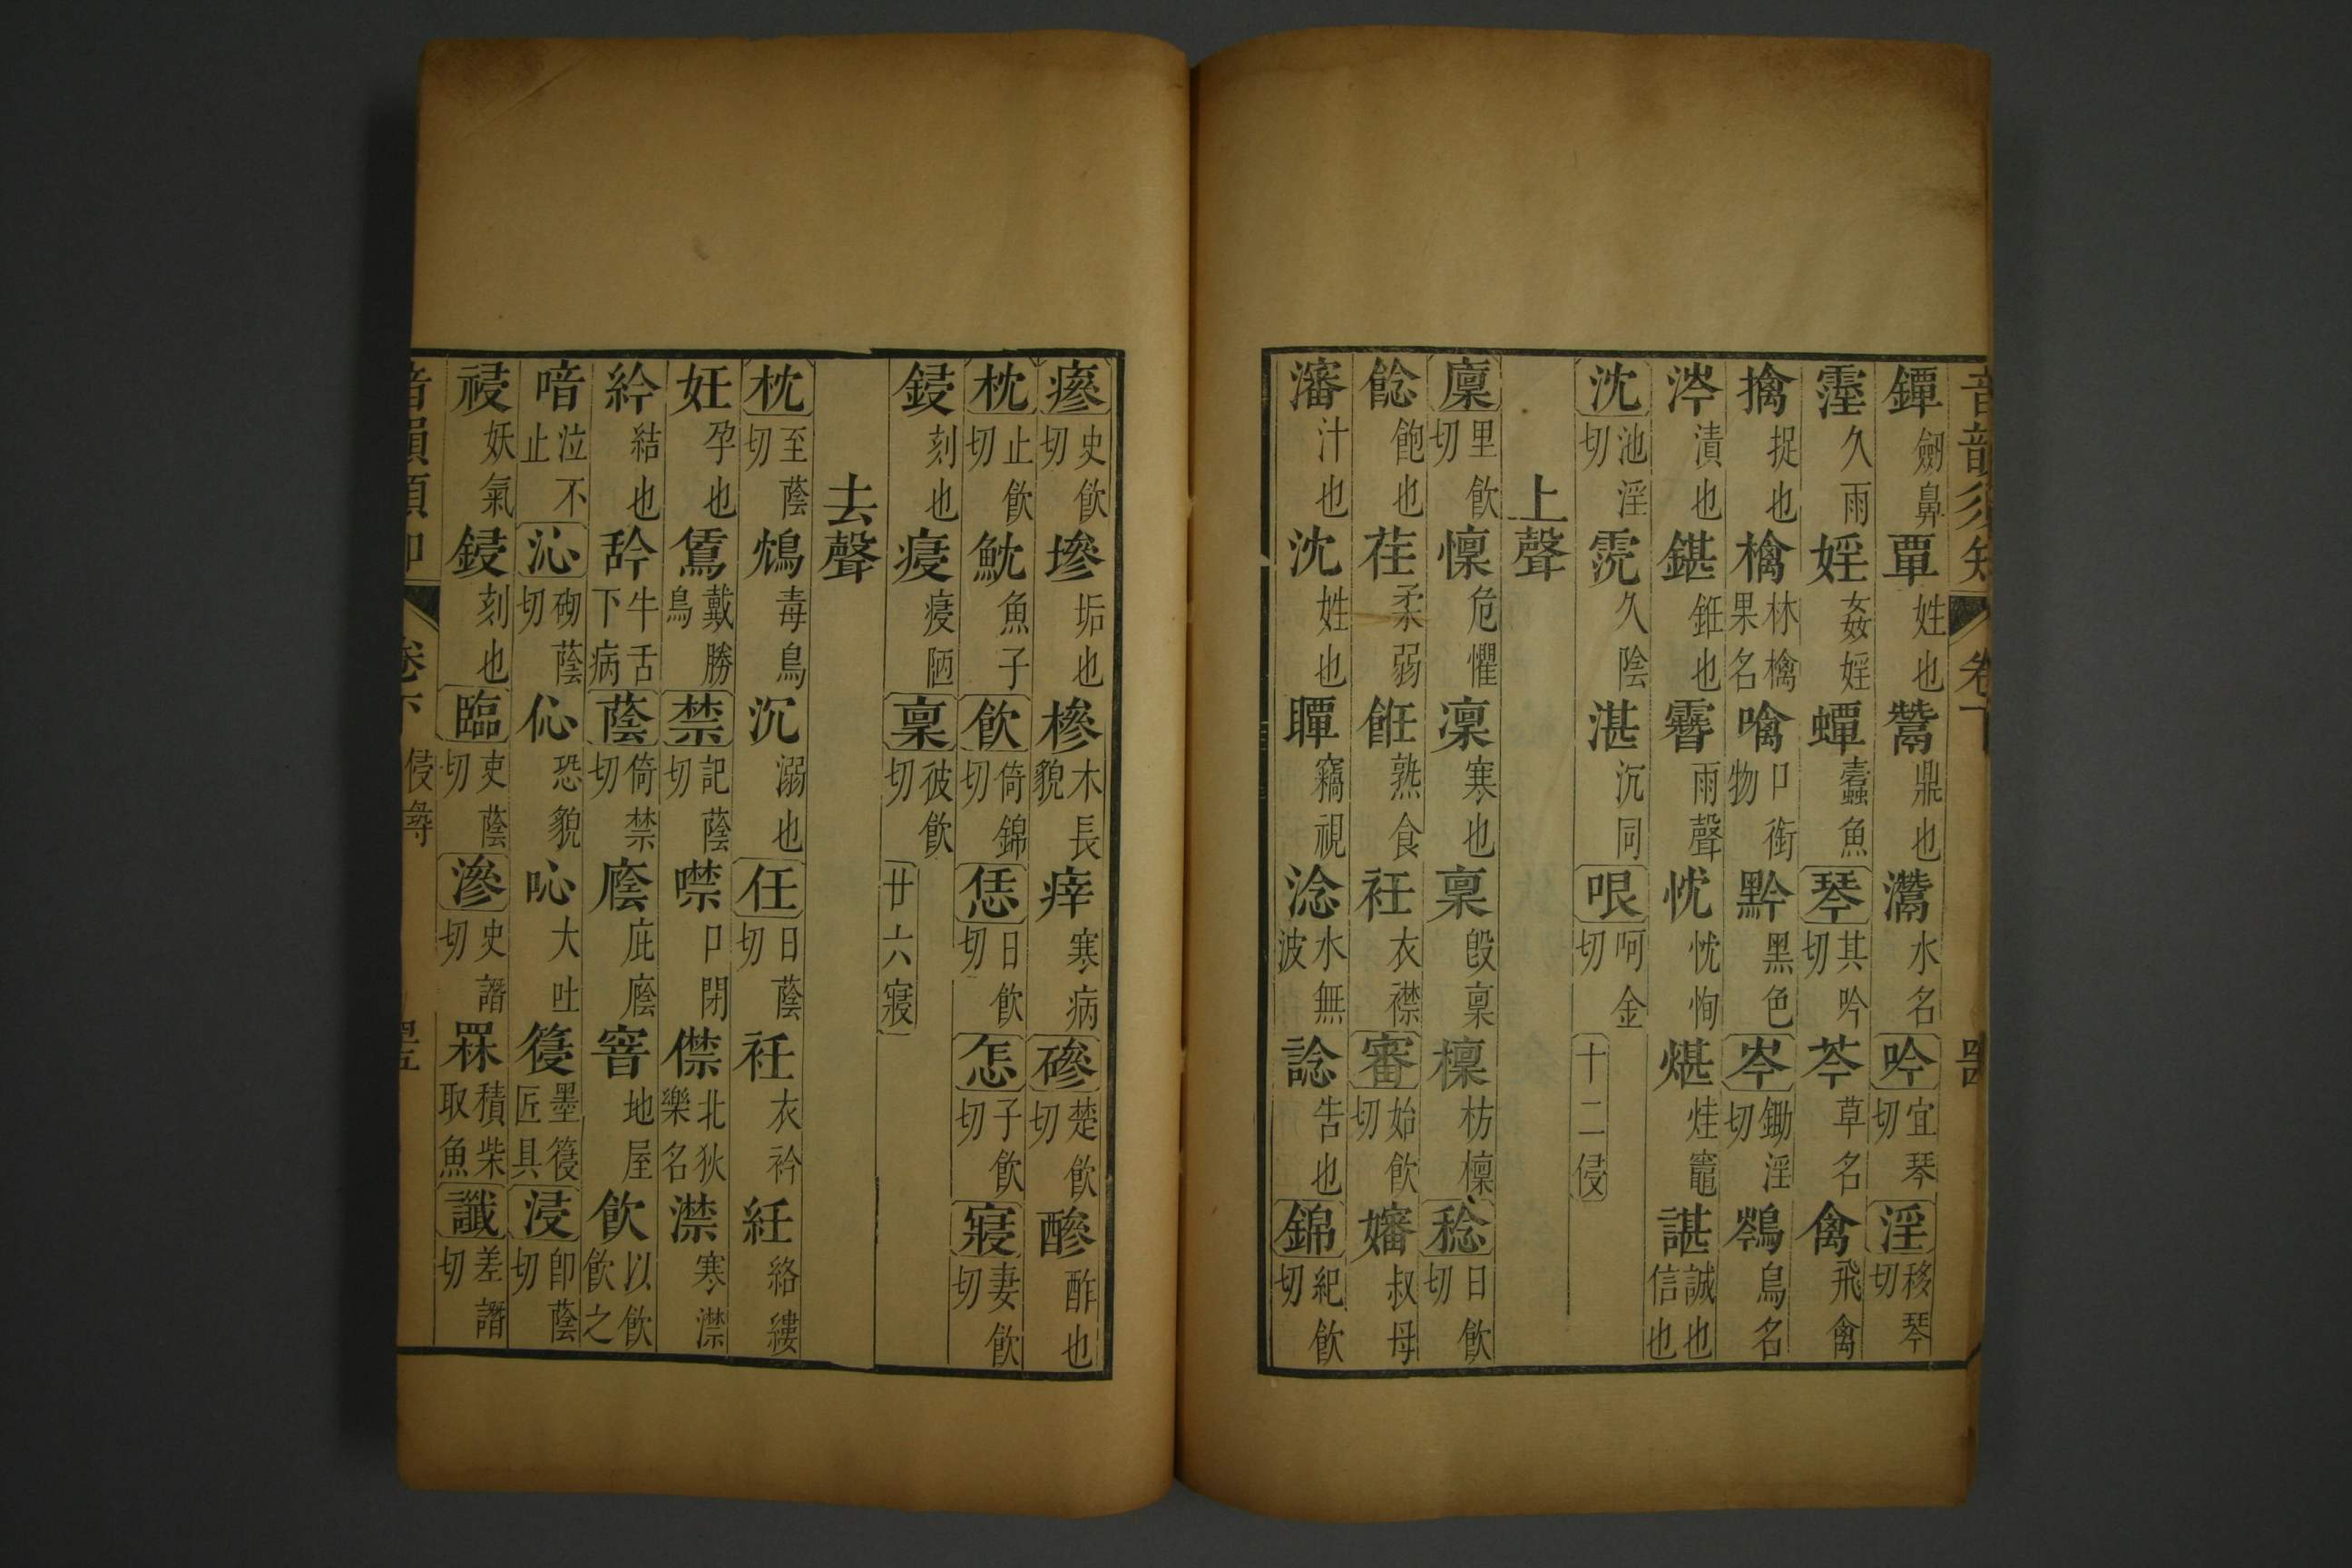 音韻須知 卷下
鐔劍鼻 覃姓也 鬵鼎也 灊水名 吟宜琴切 淫移琴切
霪久雨 婬姦婬 蟫蠹魚 琴其吟切 芩草名 禽飛禽
擒捉也 檎林檎果名 噙口銜物 黔黑色 岑鋤淫切 鳹鳥名
涔漬也 鍖鉦也 霫雨聲 忱忱恂 煁烓竈 諶誠也信也
沈池淫切 霃久陰 湛沉同 哏呵金切 十二侵
上聲
廩里飲切 懍危懼 凜寒也 稟假稟 檁枋檁 稔日飲切
餁飽也 荏柔弱 飪熟食 衽衣襟 審始飲切 嬸叔母
瀋汁也 沈姓也 瞫竊視 淰水無波 諗告也 錦紀飲切
瘮史飲切 墋垢也 槮木長貌 瘁寒病 磣楚飲切 醦酢也
枕止飲切 魫魚子 飲倚錦切 恁日飲切 怎子飲切 寢妻飲切
鋟刻也 㾛㾛陋 稟彼飲切 廿六寢
去聲
枕至蔭切 鴆毒鳥 沉溺也 任日蔭切 衽衣衿 紝絡縷
妊孕也 鵀戴勝鳥 禁記蔭切 噤口閉 僸北狄樂名 澿寒澿
紟結也 䶖牛舌下病 蔭倚禁切 廕庇廕 窨地屋 飲以飲飲之
喑泣不止 沁砌蔭切 伈恐貌 吣大吐 䈜墨䈜匠具 浸即蔭切
祲妖氣 鋟刻也 臨吏蔭切 滲史譖切 罧積柴取魚 讖差譖切
音韻須知 卷下 侵尋